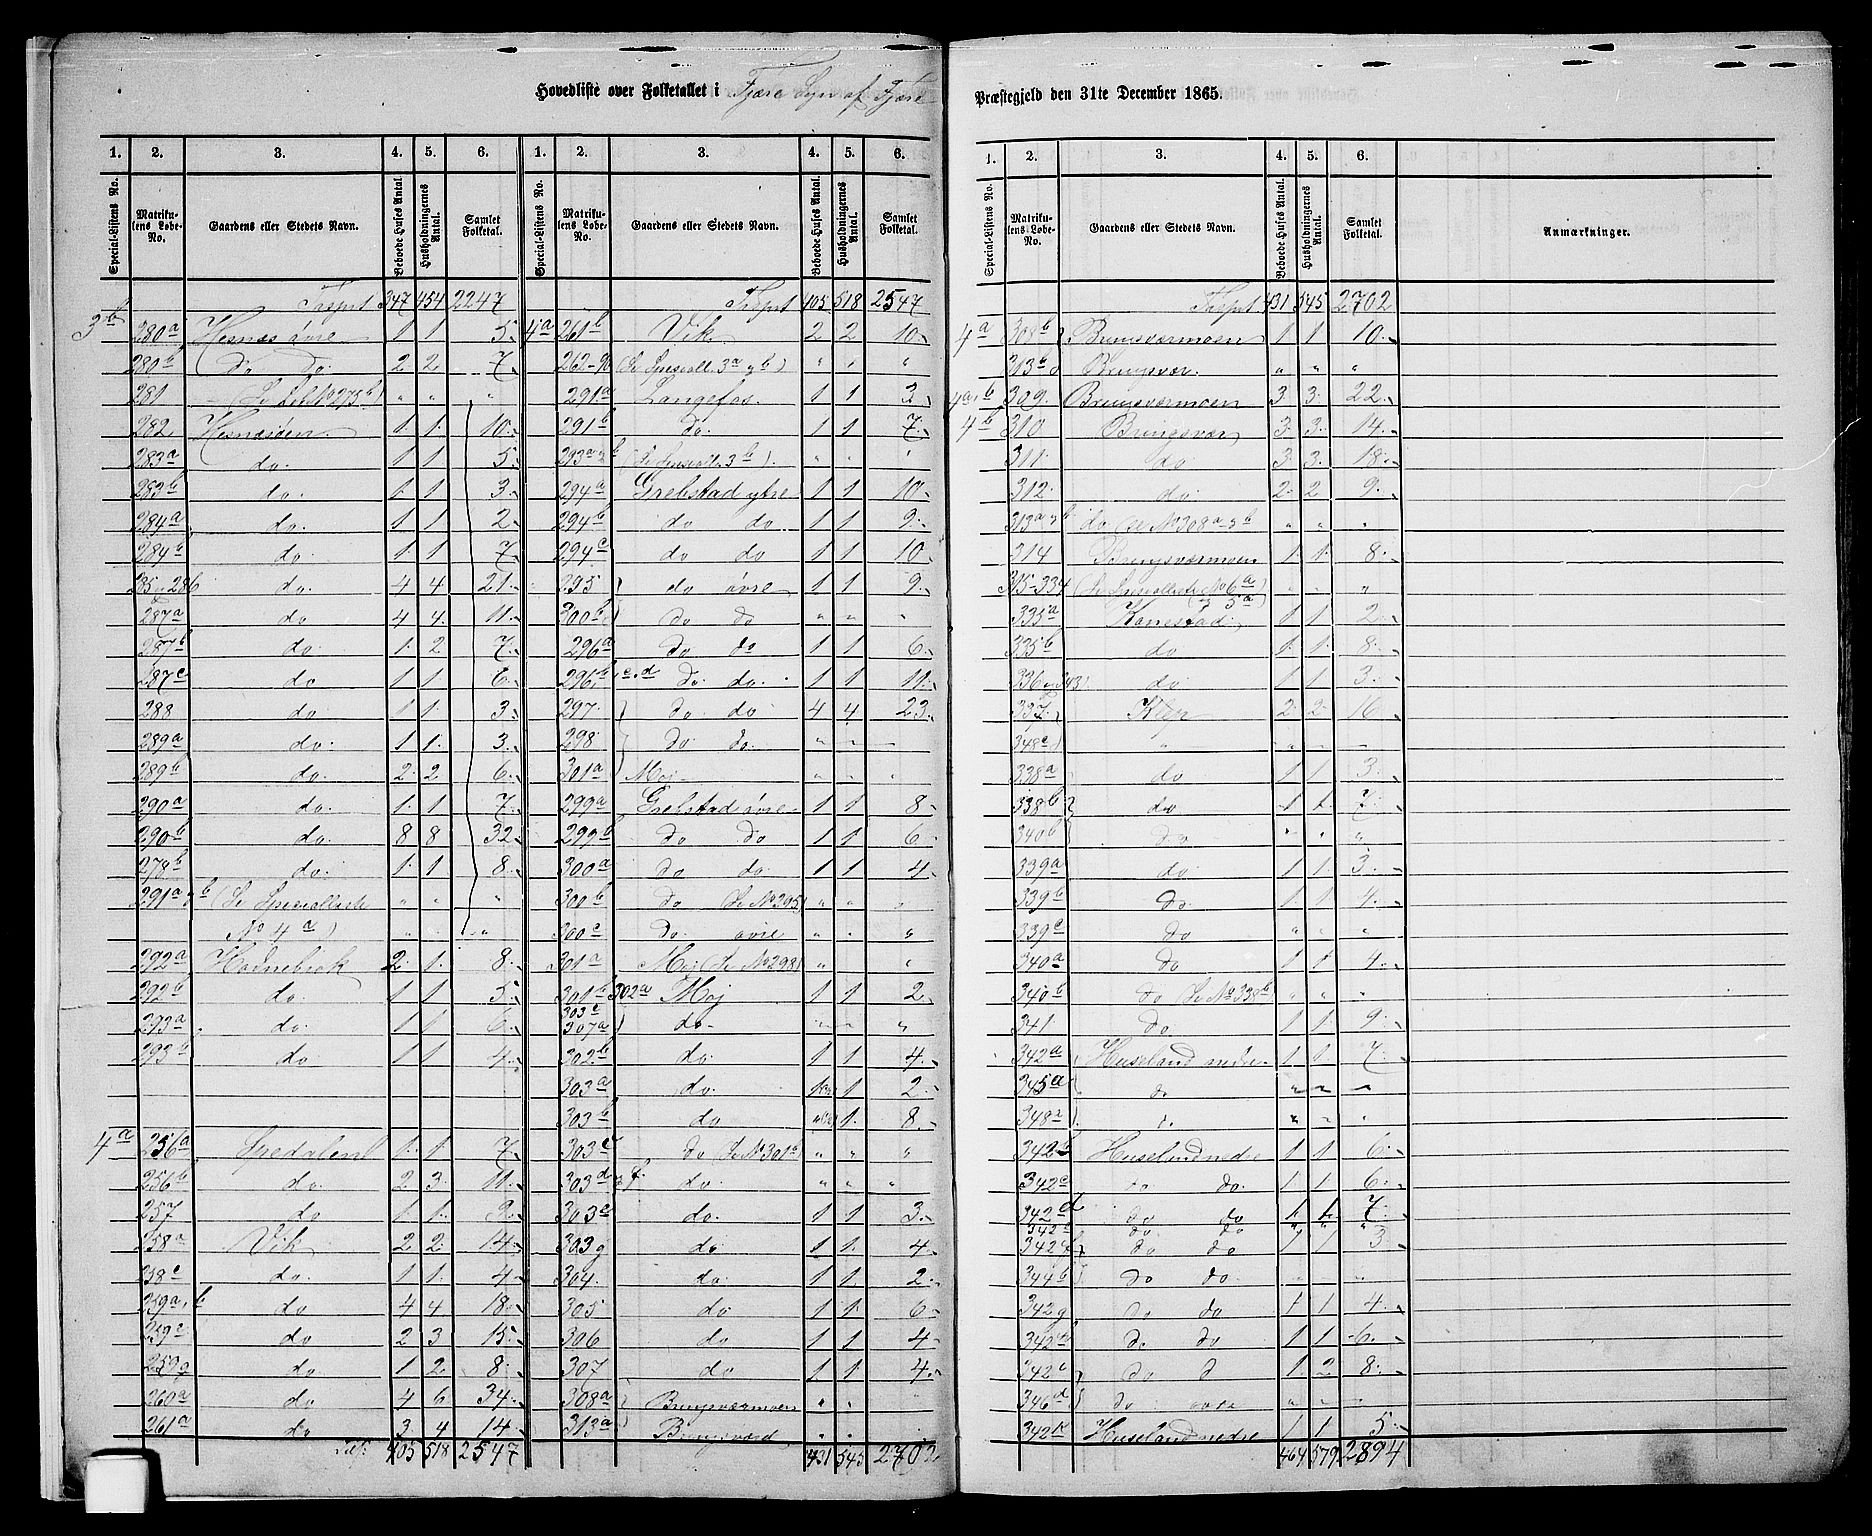 Hovedliste over Folketallet i Fjære Sogn af Fjære
Præstegjeld den 31te December 1865.
1. 2. 3. 4. 5. 6.
Special-Listens No. Matrikulens Løbe-No. Gaardens eller Stedets Navn. Beboede Huses Antal. Husholdningernes Antal. Samlet Folketal.
Trspt 347 454 2247
3b 280a Hesnæs øvre 1 1 5
280b do do 2 2 7
281 (Se Lit. No 275b) " " "
282 Hesnæsøen 1 1 10
283a do 1 1 5
283b do 1 1 3
284a do 1 1 2
284b do 1 1 7
285 286 do 4 4 21
287a do 4 4 11
287b do 1 2 7
287c do 1 1 6
288 do 1 1 3
289a do 1 1 3
289b do 2 2 6
290a do 1 1 7
290b do 8 8 32
278b do 1 1 8
291a b (Se Specialliste " " "
No 4a) " " "
292a Hornebrok 2 1 8
292b do 1 1 5
293a do 1 1 6
293b do 1 1 4
4a 256a Spedalen 1 1 7
256b do 2 3 11
257 do 1 1
258a Vik 2 2 14
258c do 1 1 4
259a, b do 4 4 18
259c do 2 3 15
259g do 1 2 8
260a do 4 6 34
261a do 3 4 14
405 518 2547
1. 2. 3. 4. 5. 6.
Special-Listens No. Matrikulens Løbe-No. Gaardens eller Stedets Navn. Beboede Huses Antal. Husholdningernes Antal. Samlet Folketal.
Trspt 405 518 2547
4a 261b Vik 2 2 10
262-90 (Se Speciall. 3a og b) " " "
291a Langefos 1 1 3
291b do 1 1 7
293a b (Se Speciall. 3b) " " "
294a Grebstad ytre 1 1 10
294b do do 1 1 9
294c do do 1 1 10
295 do øvre 1 1 9
300b do do " " "
296a do do 1 1 6
296b, c, d do do 1 1 11
297 do do 4 4 23
298 do do " " "
301a Moj " " "
299a Grebstad øvre 1 1 8
299b do do 1 1 6
300a do do 1 1 4
300b do (Se No 295) " " "
300c do øvre " " "
301a Moj (Se No 298) " "
301b 302a Moj 1 1 2
303c
307a do " " "
302b do 1 1 4
303a do 1 1 2
303b do 1 8
303c do (Se No 301b) " " "
303d f do " " "
303e do 1 1 3
303g do 1 1 4
304 do 1 1 2
305 do 1 1 6
306 do 1 1 4
307 do 1 1 4
308a Bringsværmoen " "
313a Bringsværd " "
431 545 2702
1. 2. 3. 4. 5. 6.
Special-Listens No. Matrikulens Løbe-No. Gaardens eller Stedets Navn. Beboede Huses Antal. Husholdningernes Antal. Samlet Folketal. Anmærkninger.
Trspt 431 545 2702
4a 308b Bringsværmoen 1 1 10
313b Bringsvær " " "
4a, b 309 Bringsværmoen 3 3 22
4b 310 Bringsvær 3 3 14
311 do 3 3 18
312 do 2 2 9
313a b do (se No 308a b) " " "
314 Bringsværmoen 1 1 8
315-334 (Se Specialliste No 6a) " " "
(5a)
335a Konestad 1 1 2
335b do 1 1 8
336 343 do 1 1 3
337 Klep 2 2 16
348c " " "
338a do 1 1 3
338b do 1 1 7
340b do " " "
339a do 1 1 3
339b do 1 1 4
339c do " " "
340a do 1 1 4
340b do (Se No 338b) " " "
341 do 1 1 9
342a Huseland nedre 1 1 7
345a do " " "
348a do " " "
342b Huseland nedre 1 1 6
342c do do 1 1 6
342d do do 1 1 7
342e do do " " "
342f do do 1 1 3
344b do do " " "
342g do do 1 1 4
342h do do 1 1 6
342i do d 1 2 8
346d do øvre " " "
342k Huseland nedre 1 1 5
464 579 2894